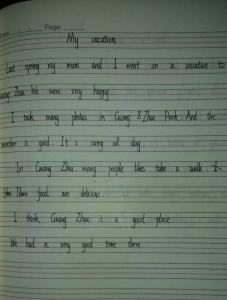 Date: Page:
My vacation
Last spring my mum and I went on a vacation to
Guang Zhou. We were very happy.
I took many photos in Guang Zhou Park. And the
weather is good. It s sunny all day.
In Guang Zhou many people likes take a walk.
food are delicious
I think Guang Zhou is a good place.
We had a very good time there.